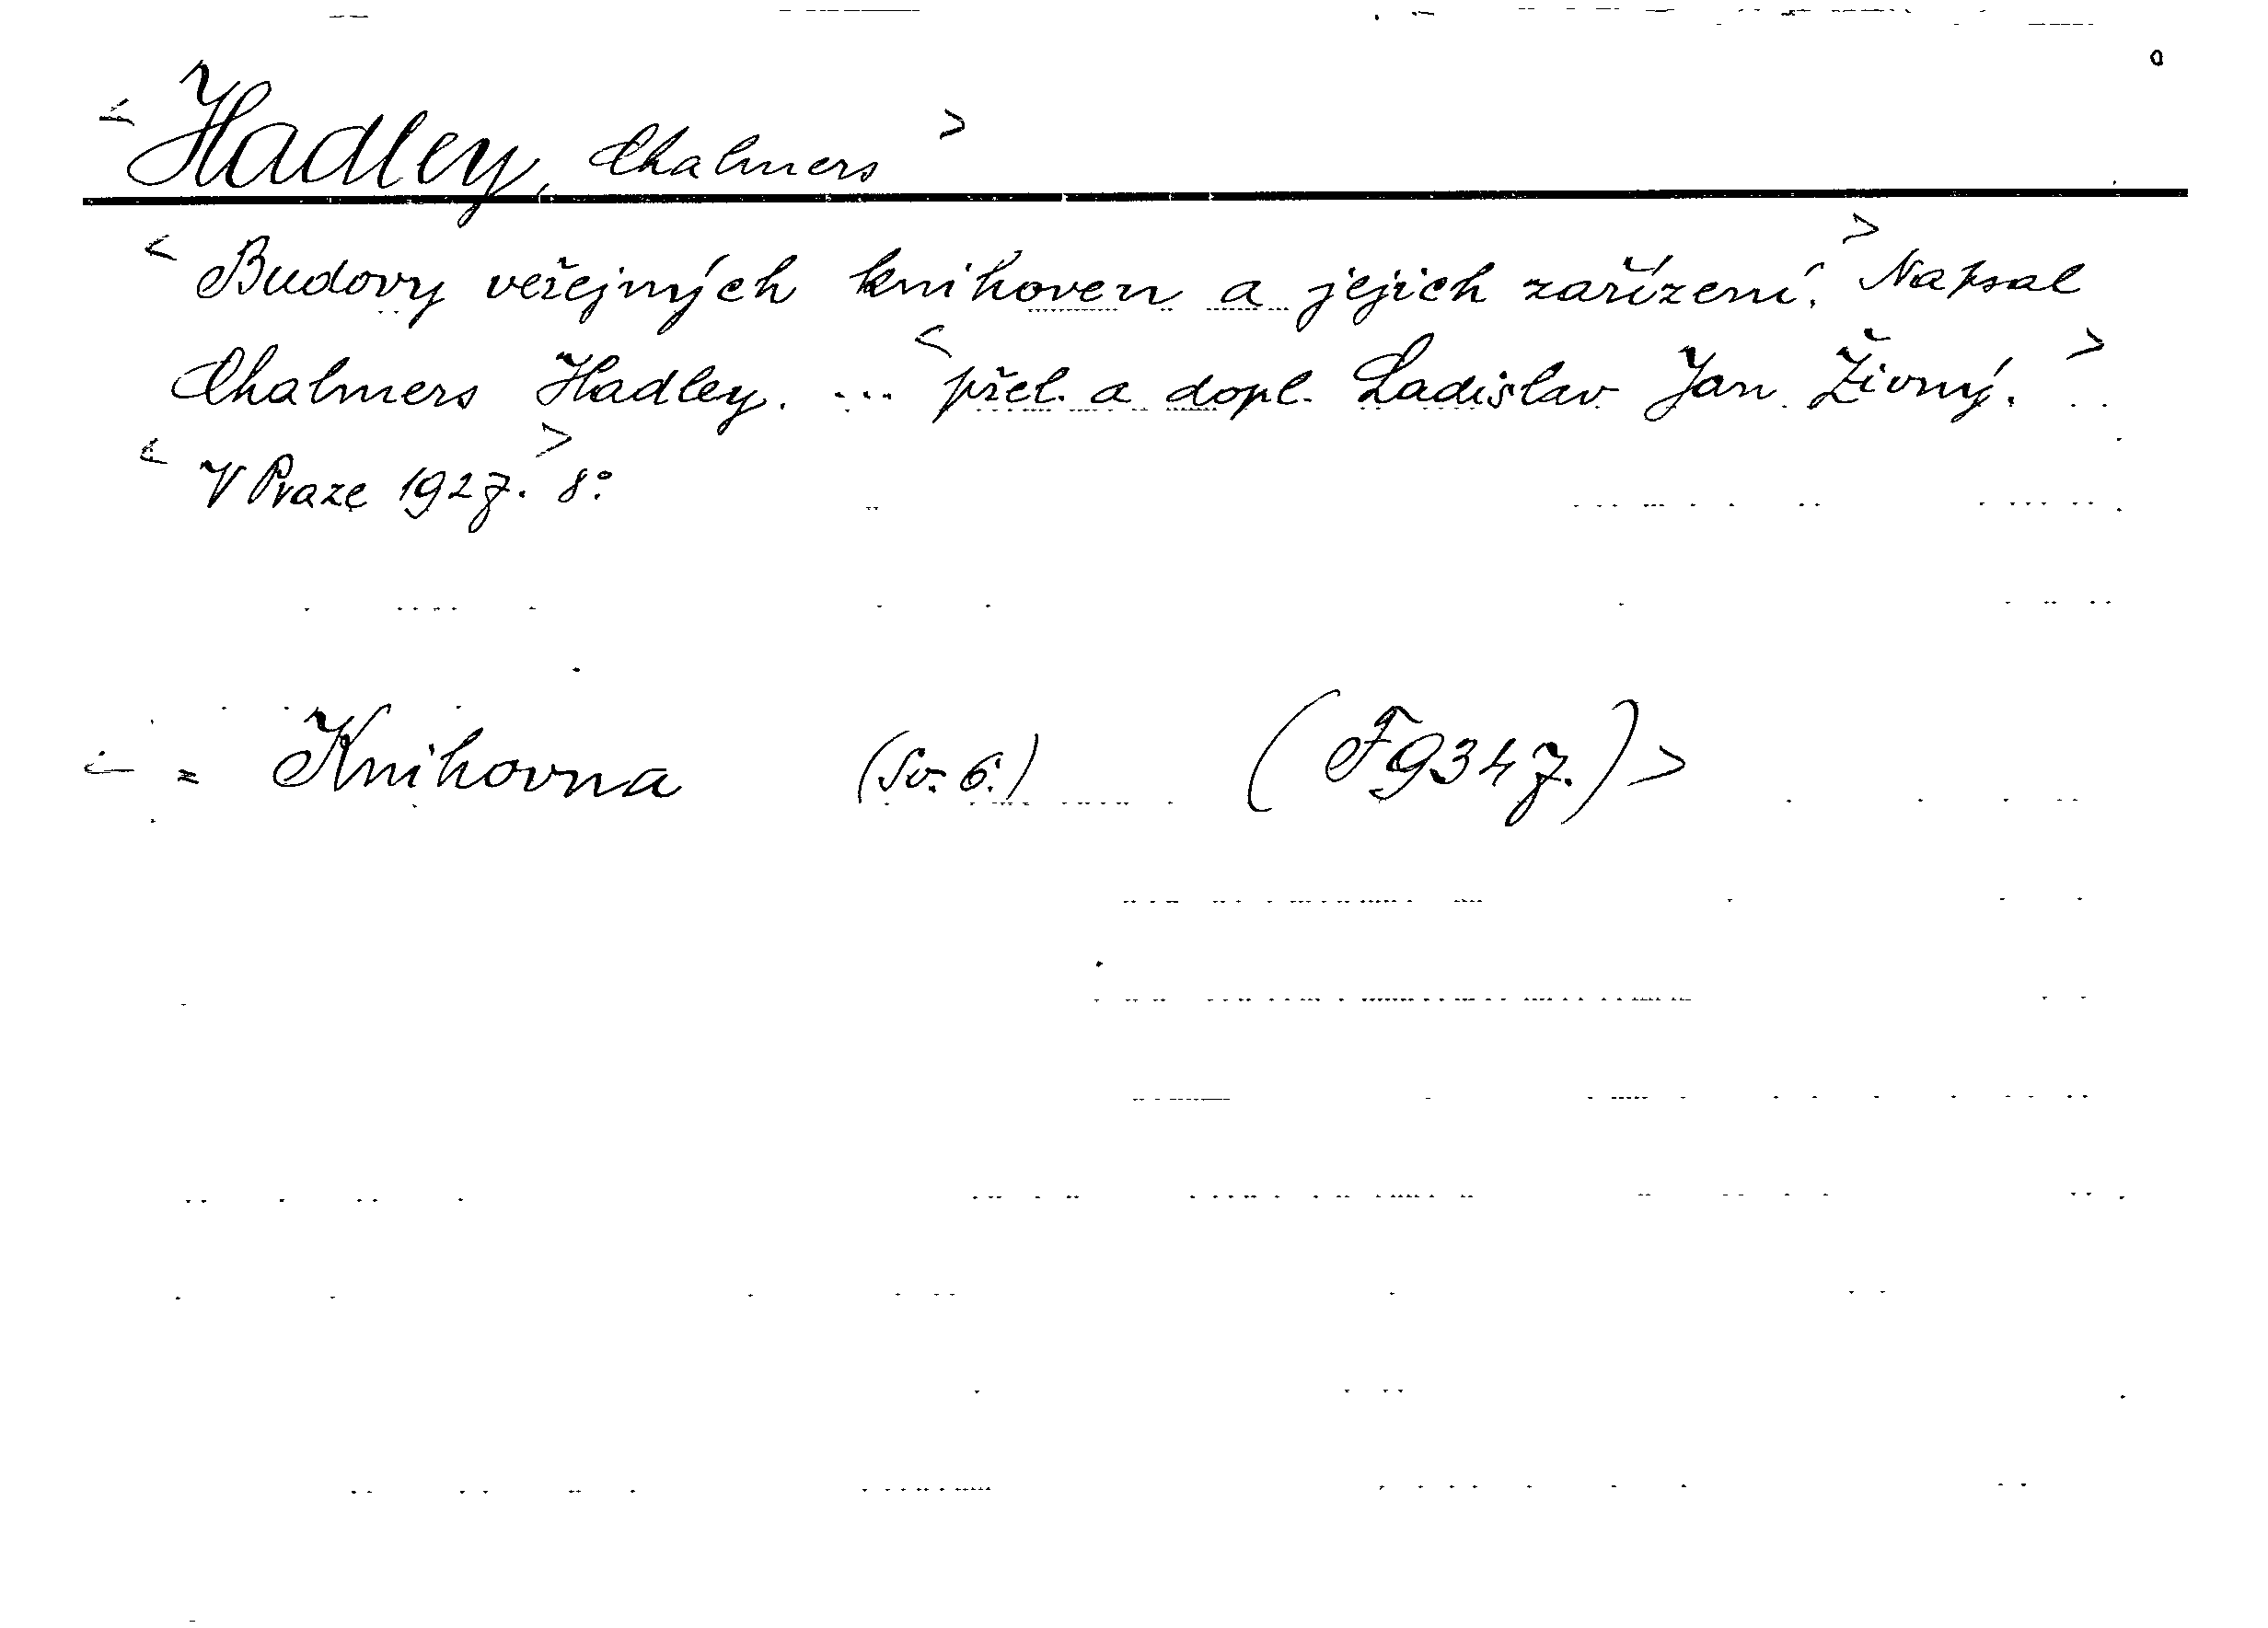 < Hadley, Chalmers >
< Budovy veřejných knihoven a jejich zařízení. > Napsal
Chalmers Hadley. ... < přel. a dopl. Ladislav Jan Živný. >
< V Praze 1927. > 8°.
< = Knihovna (Sv. 6.) (F 9347.) >